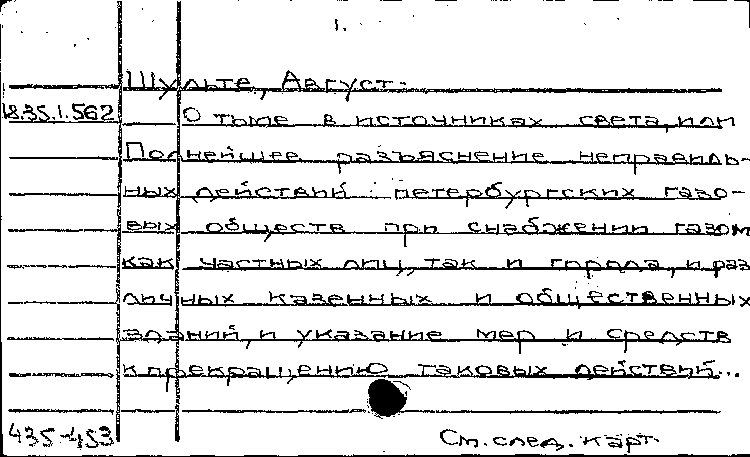 1.
Шульте, Август.
18.35.1.562
О тьме в источниках света, или
Полнейшее разъяснение неправиль-
ных действий петербургских газо-
вых обществ при снабжении газом
как частных лиц, так и города, и раз
личных казенных и общественных
зданий, и указание мер и средств
к прекращению таковых действий...
435-453
См. след. карт.